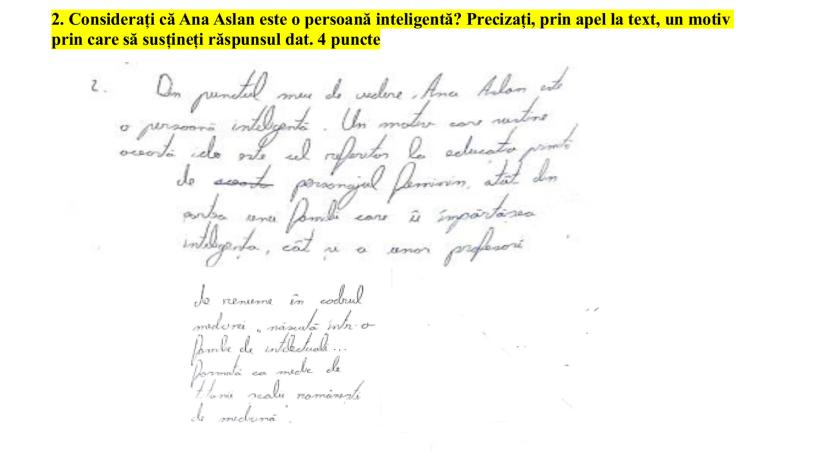 2. Considerați că Ana Aslan este o persoană inteligentă? Precizați, prin apel la text, un motiv
prin care să susțineți răspunsul dat. 4 puncte
2. Din punctul meu de vedere, Ana Aslan este
o persoană inteligentă. Un motiv care susține
aceasta idee este cel referitor la educația primită
de aceasta personajul feminin, atât din
partea unei familii care îi împărtășea
inteligența, cât și a unor profesori
de renume în cadrul
medicinei „născută într-o
familie de intelectuali...
formată ca medic de
titanii școlii românești
de medicină".